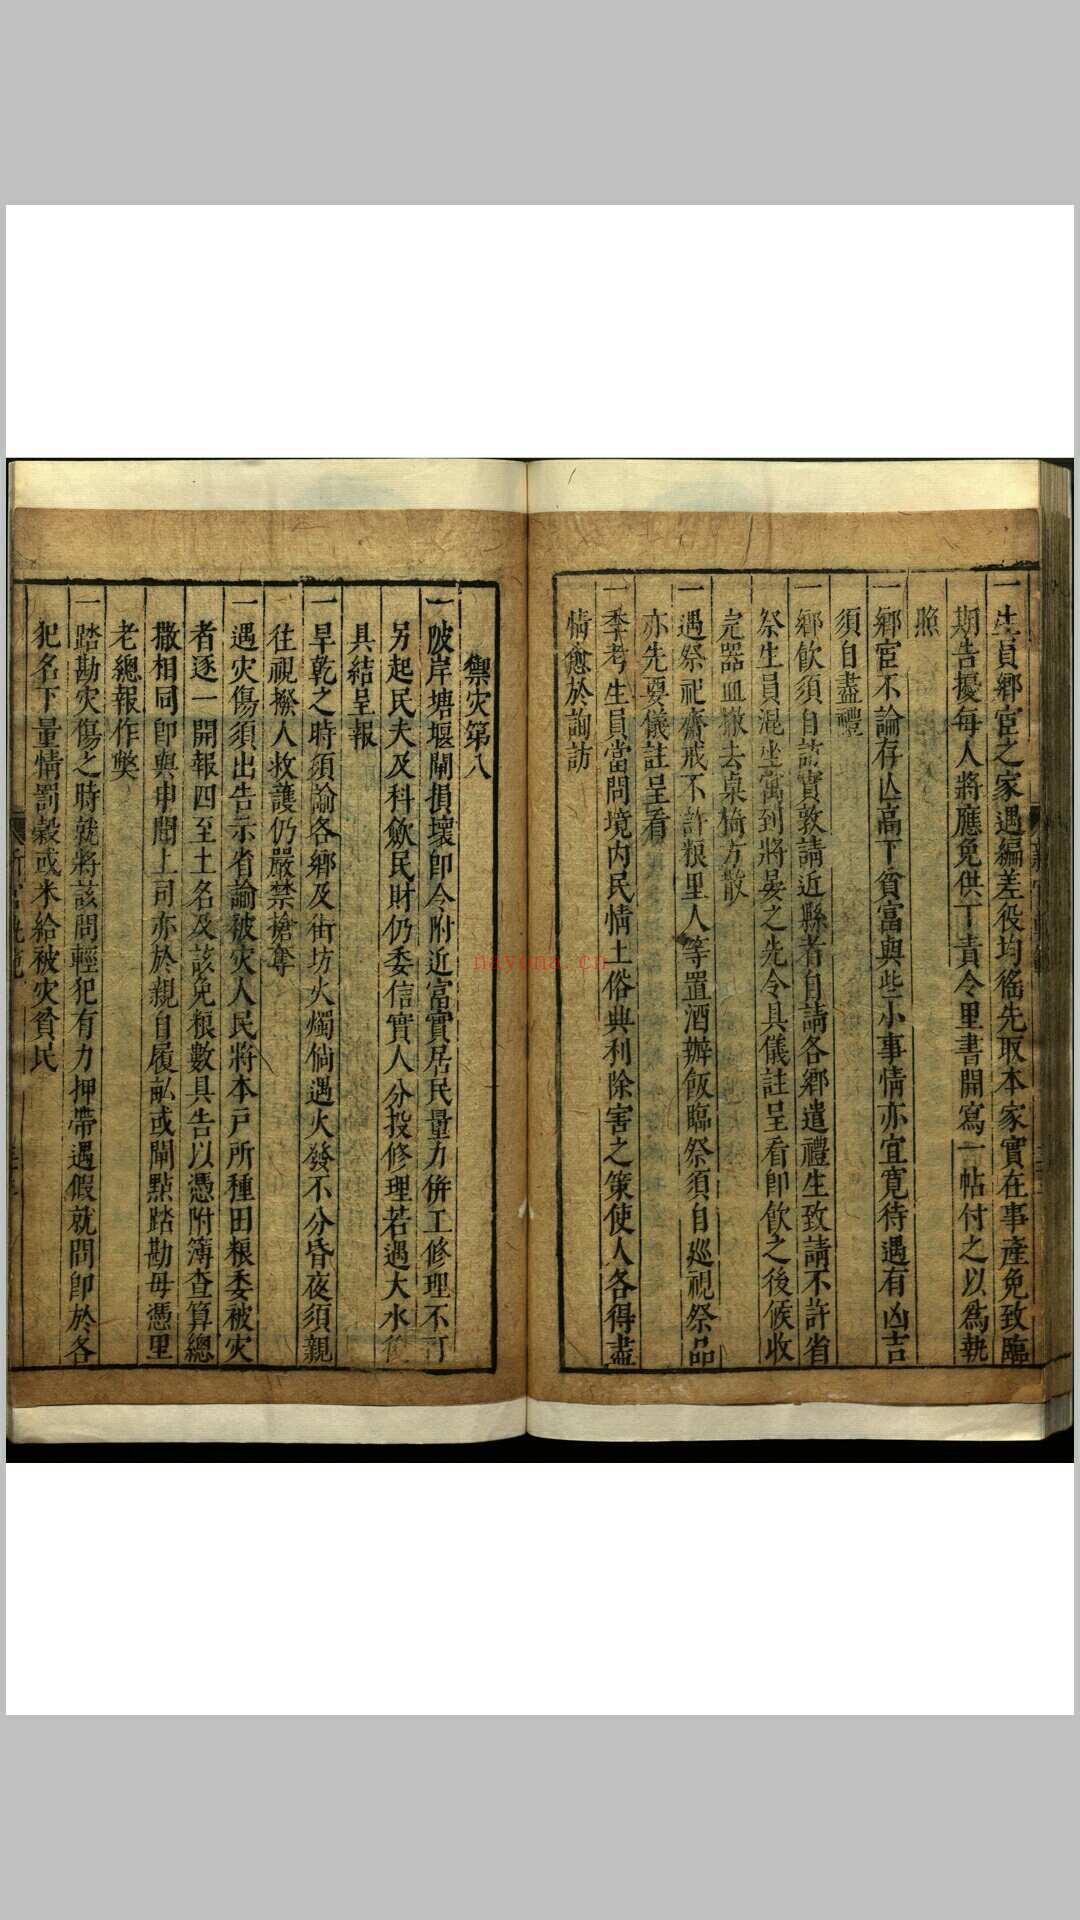 一生員鄉宦之家遇編差役均徭先取本家實在事產免致臨
期告擾每人將應免供丁責令里書開寫一帖付之以爲執
照
一鄉宦不論存亾高下貧富與些小事情亦宜寬待遇有凶吉
須自盡禮
一鄉飲須自訪實敦請近縣者自請各鄉遣禮生致請不許省
祭生員混坐寓到將晏之先令具儀註呈看卽飲之後候收
完器皿撤去桌椅方散
一遇祭祀齋戒不許粮里人等置酒辦飯臨祭須自廵視祭品
亦先要儀註呈看
一季考生員當問境內民情土俗典利除害之策使人各得盡
情愈於詢訪
禦灾第八
一陂岸塘堰閘損壞卽令附近富實居民量力併工修理不可
另起民夫及科歛民財仍委信實人分投修理若遇大水
具結呈報
一旱乾之時須諭各鄉及街坊火燭倘遇火發不分昏夜須親
往視撥人救護仍嚴禁搶奪
一遇灾傷須出告示省諭被灾人民將本戸所種田粮委被灾
者逐一開報四至土名及該免粮數具告以憑附簿查算總
撒相同卽與申聞上司亦於親自履畝或鬮點踏勘毋憑里
老總報作獘
一踏勘灾傷之時就將該問輕犯有力押帶遇假就問卽於各
犯名下量情罰穀或米給被灾貧民
nayona.cn